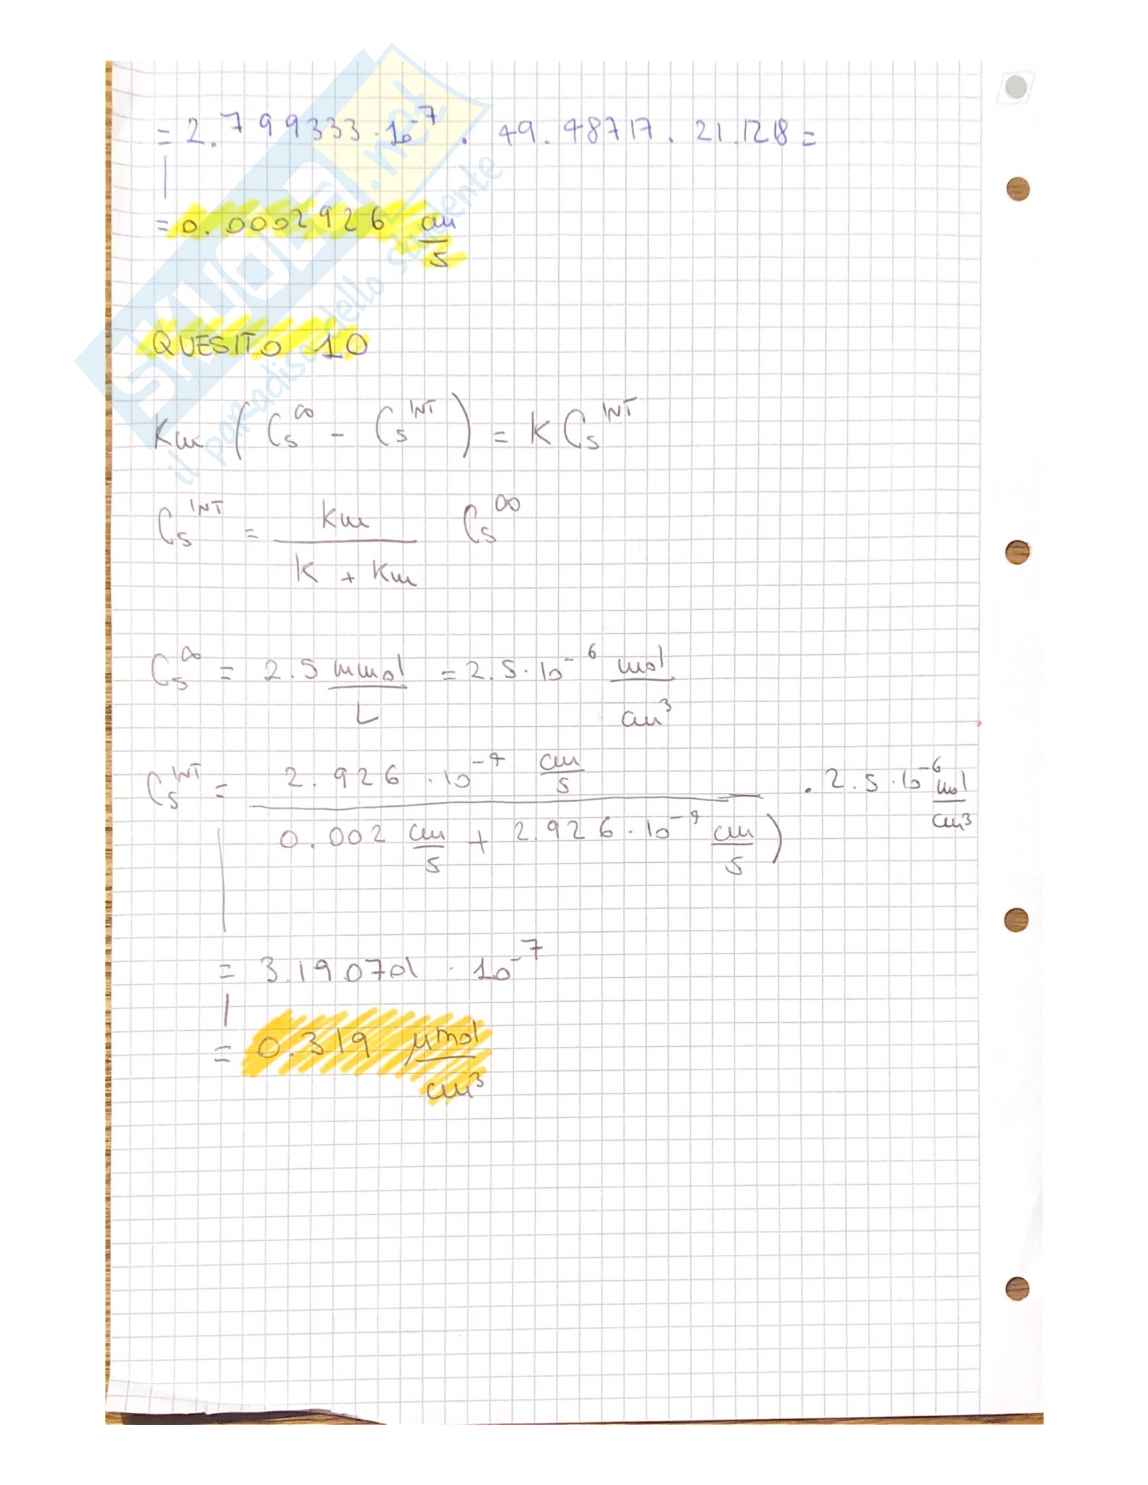 = 2.799333·10^-7 · 49.48717 · 21.1218 =
= 0.0002926 cm/s
QUESITO 10
Km (Cs^∞ - Cs^INT) = K Cs^INT
Cs^INT = Km / (K + Km) Cs^∞
Cs^∞ = 2.5 mmol/L = 2.5·10^-6 mol/cm³
Cs^INT = 2.926·10^-4 cm/s / (0.002 cm/s + 2.926·10^-4 cm/s) · 2.5·10^-6 mol/cm³
= 3.190701 · 10^-7
= 0.319 μmol/cm³
SKUOLA.net
il paradiso dello studente